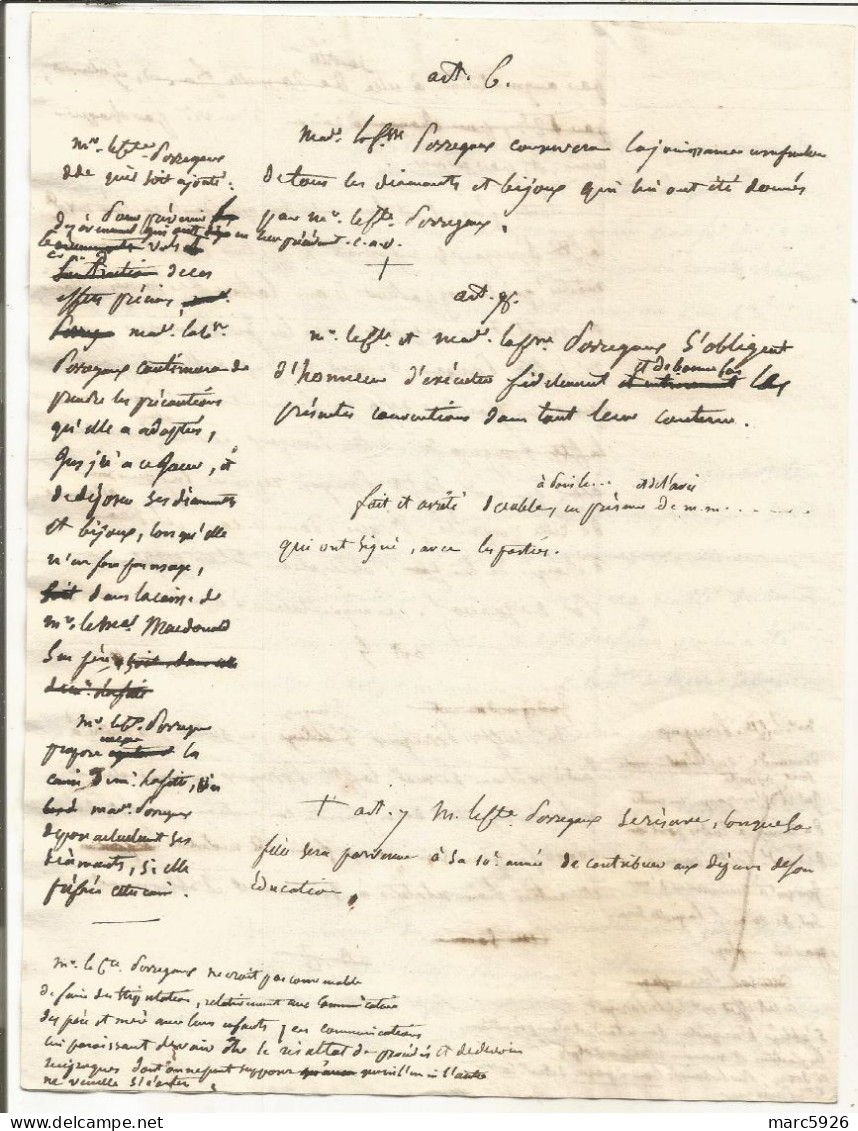 art. 6.
Mad. la Csse Perregaux conservera la jouissance
de tous les diamants et bijoux qui lui ont été donnés
par Mr. le Cte. Perregaux.
art. 8.
Mr. le Cte. et Mad. la Csse Perregaux s'obligent
d'honneur d'exécuter fidelement et de bonne foi les
présentes conventions dans tout leur contenu.
fait et arrêté double, en présence de m.m.
qui ont signé, avec les parties.
+ art. 7 M. le Cte. Perregaux se réserve, lorsque sa
fille sera parvenue à sa 10e. année de contribuer aux dépens de son
éducation.
Mr. le Cte. Perregaux
dde. qu'il soit ajouté:
Pour prévenir
vols
de ces
effets précieux
mad. la Csse.
Perregaux continuera de
prendre les précautions
qu'elle a adoptées,
jusqu'à ce jour, et
de déposer ses diamants
et bijoux, lorsqu'elle
n'en fera pas usage,
dans la caisse de
Mr. le Mal Macdonald
son père
Mr. le Cte. Perregaux
propose la
caisse de Mr. Lafitte, où
mad. Perregaux
dépose actuellement ses
diamants, si elle
préfère cette caisse.
Mr. le Cte. Perregaux ne croit pas convenable
de faire des stipulations, relativement aux communications
des père et mère avec leurs enfants, ces communications
lui paraissant devoir être le résultat de procédés et de devoirs
réciproques dont on ne peut supposer que ni l'un ni l'autre
ne veuille s'écarter.
marc5926